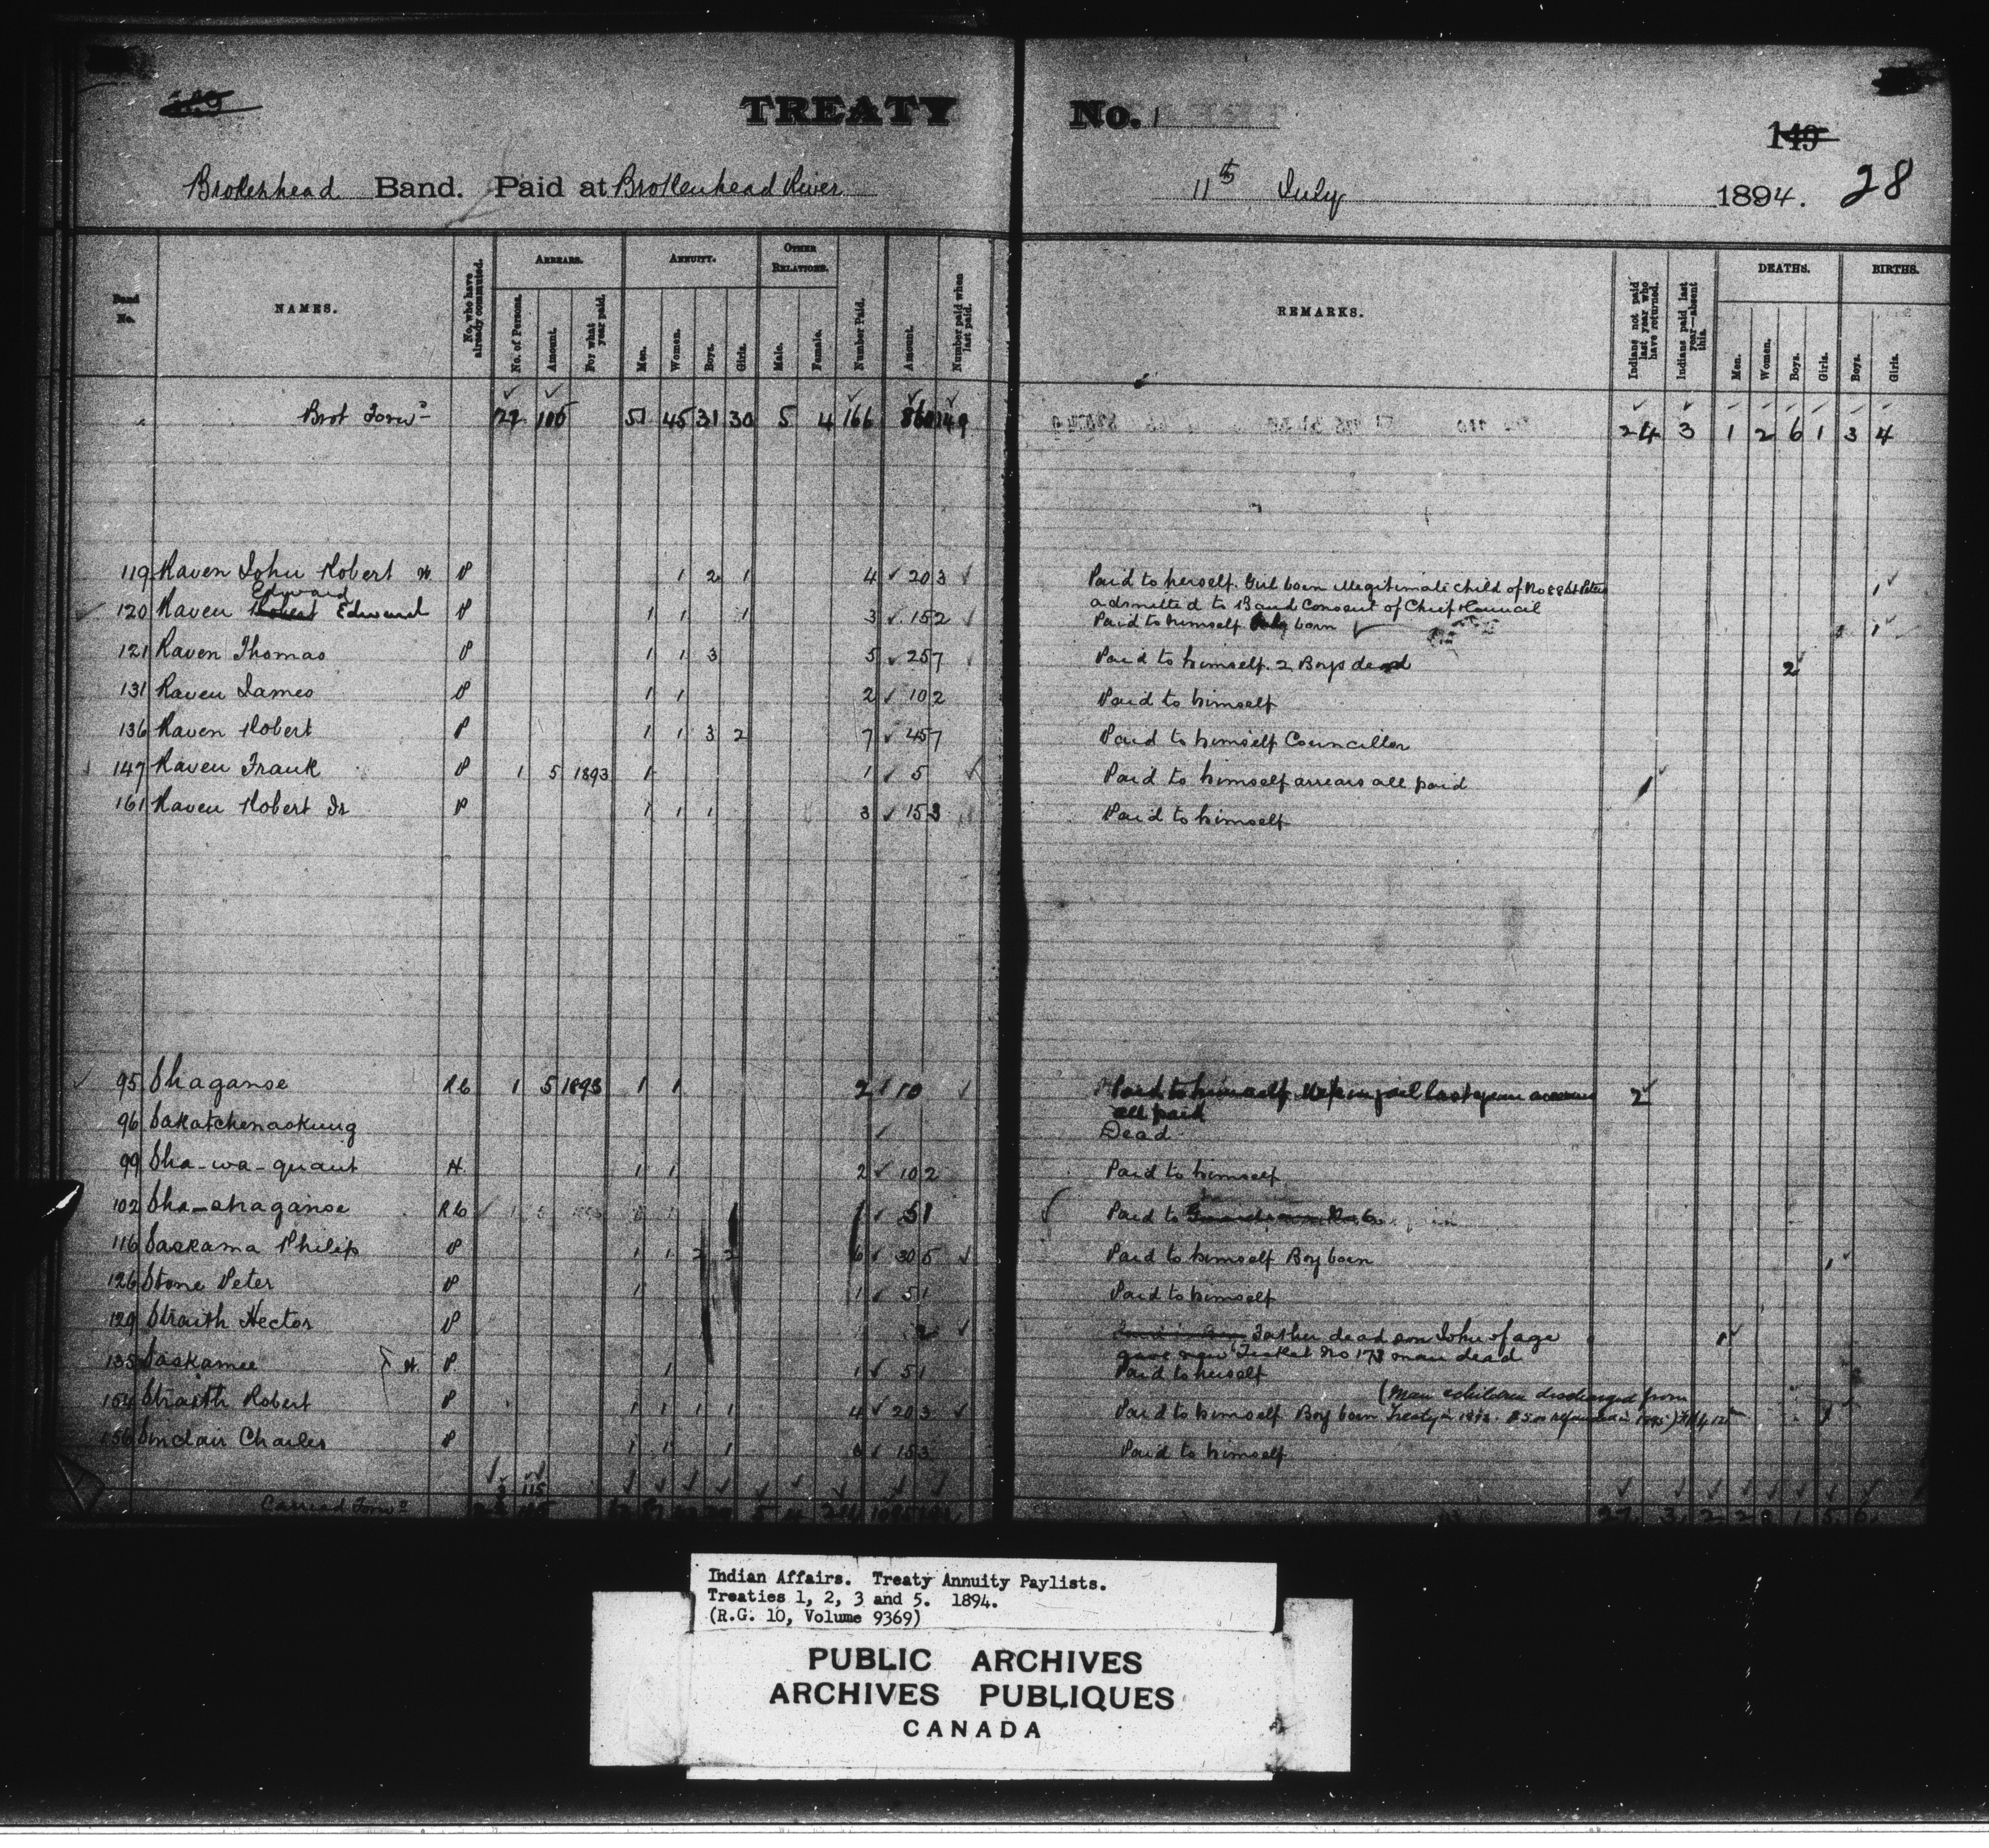 TREATY No. 1
149
28
Brokenhead Band. Paid at Brokenhead River 11th July 1894.
Band No.
NAMES.
No. who have already commuted.
ARREARS.
No. of Persons.
Amount.
For what year paid.
ANNUITY.
Men.
Women.
Boys.
Girls.
OTHER RELATIONS.
Male.
Female.
Number Paid.
Amount.
Number paid when last paid.
REMARKS.
Indians not paid last year who have returned.
Indians paid last year—absent this.
DEATHS.
Men.
Women.
Boys.
Girls.
BIRTHS.
Boys.
Girls.
Brot Forwd 51 45 31 30 5 4 166 149 24 3 1 2 6 1 3 4
119 Raven John Robert W P 1 2 1 4 20 3 Paid to herself. Girl born illegitimate child of No 88 admitted to Band Consent of Chief & Council 1
Edward
120 Raven Robert Edward P 1 1 1 3 15 2 Paid to himself born 1
121 Raven Thomas P 1 1 3 5 25 7 Paid to himself. 2 Boys dead 2
131 Raven James P 1 1 2 10 2 Paid to himself
136 Raven Robert P 1 1 3 2 7 45 7 Paid to himself Councillor
147 Raven Frank P 1 5 1893 1 1 5 Paid to himself arrears all paid 1
161 Raven Robert Jr P 1 1 1 3 15 3 Paid to himself
95 Shaganse RC 1 5 1893 1 1 2 10 Paid to himself in jail last year arrears all paid 2
96 Sakatchenaskung Dead
99 Sha-wa-quant H 1 1 2 10 2 Paid to himself
102 Sha-shaganse RC 1 5 1 Paid to
116 Saskama Philip P 1 1 2 2 6 30 5 Paid to himself Boy born 1
126 Stone Peter P 1 1 5 1 Paid to himself
129 Straith Hector P 2 Father dead son John of age gave new Ticket No 173 man dead 1
135 Saskamee W P 1 1 5 1 Paid to herself
154 Straith Robert P 1 1 1 1 4 20 3 Paid to himself Boy born (Man & children discharged from Treaty in 1
156 Sinclair Charles P 1 1 1 3 15 3 Paid to himself
Carried Forwd
Indian Affairs. Treaty Annuity Paylists.
Treaties 1, 2, 3 and 5. 1894.
(R.G. 10, Volume 9369)
PUBLIC ARCHIVES
ARCHIVES PUBLIQUES
CANADA